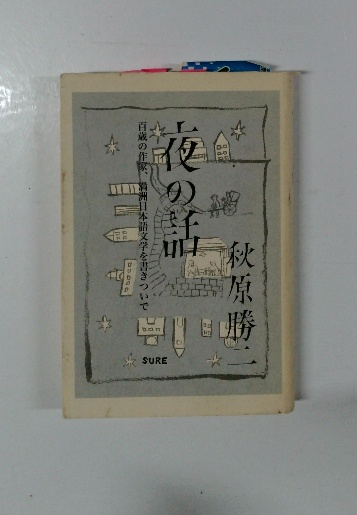 夜の話
百歳の作家、満洲日本語文学を書きついで
秋原勝二
SURE